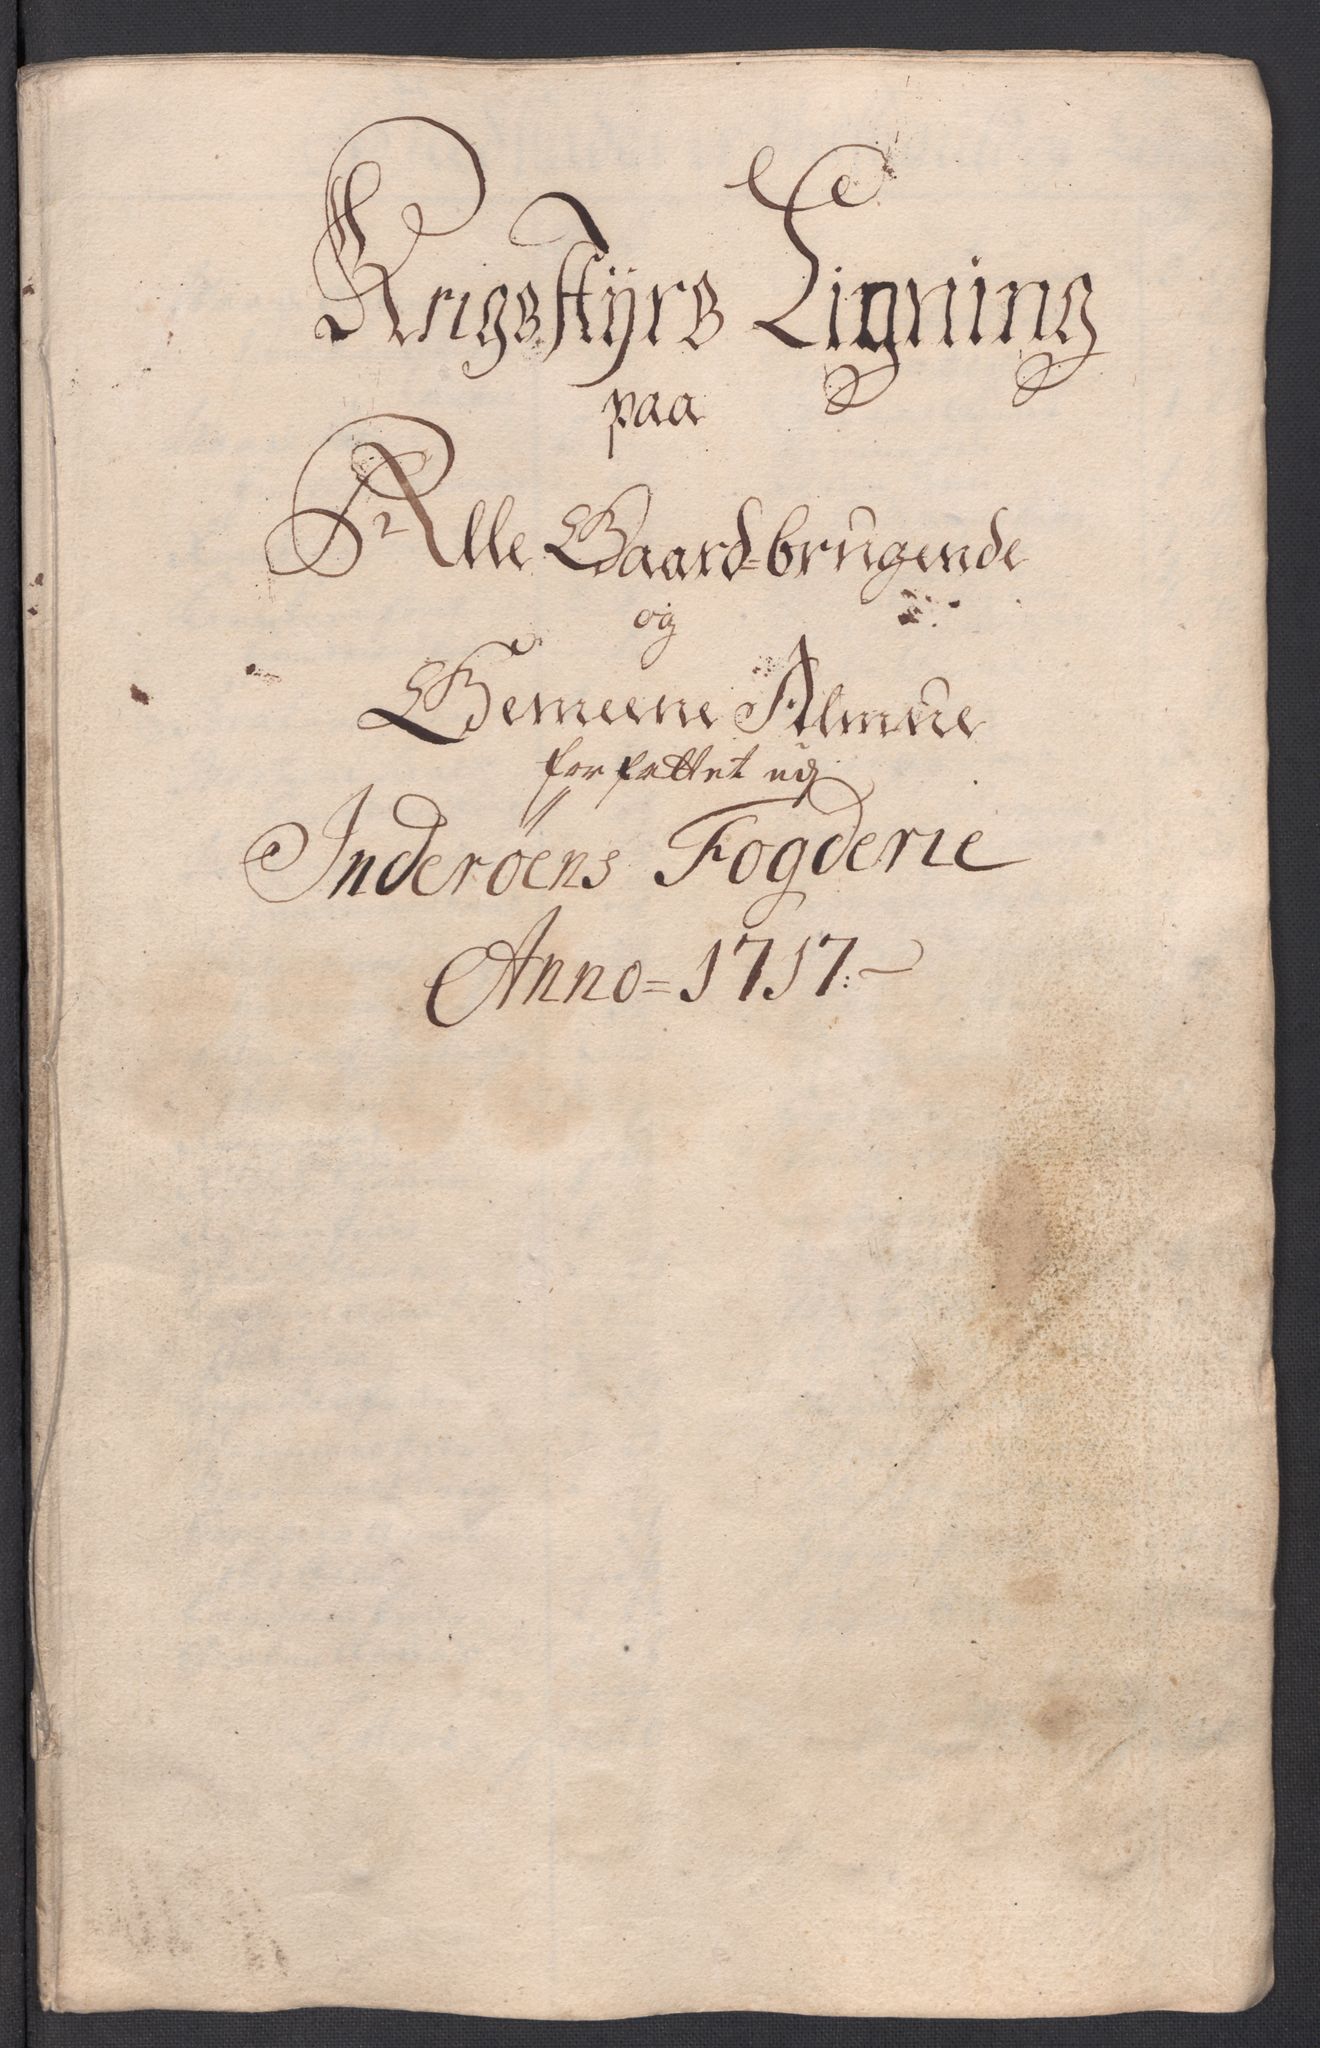 Krigsstyrs Ligning
paa
Alle Gaard=brugende
og
Gemeene Almue
forfattet udj
Inderøens Fogderie
Anno= 1717: